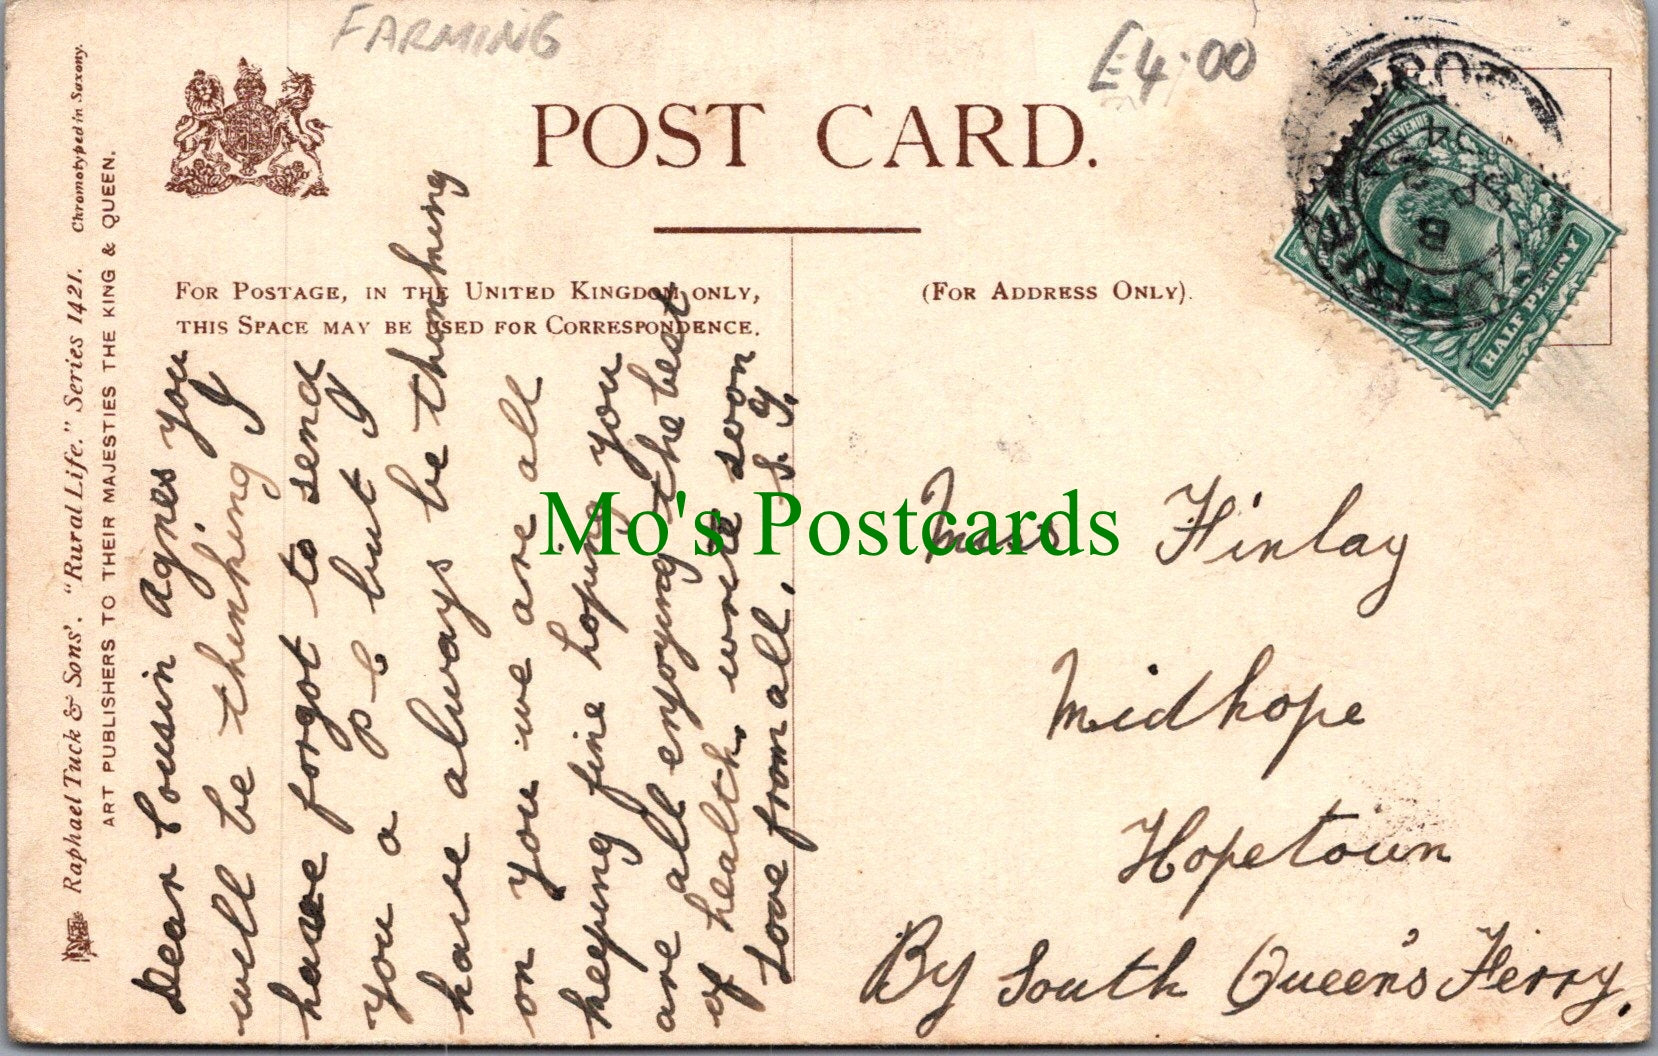 FARMING
£4.00
POST CARD.
FOR POSTAGE, IN THE UNITED KINGDOM ONLY,
THIS SPACE MAY BE USED FOR CORRESPONDENCE.
(FOR ADDRESS ONLY).
Raphael Tuck & Sons'. "Rural Life." Series 1421. Chromotyped in Saxony.
ART PUBLISHERS TO THEIR MAJESTIES THE KING & QUEEN.
Dear Cousin Agnes you
will be thinking I
have forgot to send
you a p-c but I
have always be thinking
on you we are all
keeping fine hoping you
are all enjoying the best
of health, write soon
Love from all, S. Y.
Miss Finlay
Midhope
Hopetoun
By South Queen's Ferry.
HALF PENNY
Mo's Postcards